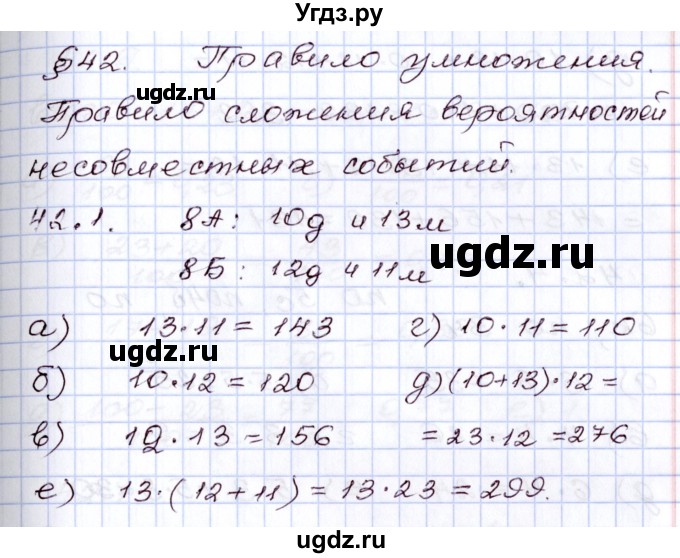 Угдз.ру
§42. Правило умножения.
Правило сложения вероятностей
несовместных событий.
42.1. 8А: 10д и 13м
8Б: 12д и 11м
а) 13·11=143 г) 10·11=110
б) 10·12=120 д) (10+13)·12=
в) 12·13=156 =23·12=276
е) 13·(12+11)=13·23=299.
©gdz.ru
©gdz.ru
©gdz.ru
©gdz.ru
Угдз.ру